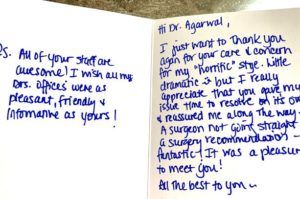 P.S. All of your staff are
awesome! I wish all my
Drs. Offices were as
pleasant, friendly &
informative as yours!
Hi Dr. Agarwal,
I just want to thank you
again for your care & concern
for my "horrific" stye. Little
dramatic :) but I really
appreciate that you gave my
issue time to resolve on its own
& reassured me along the way.
A surgeon not going straight
a surgery recommendation -
fantastic! It was a pleasure
to meet you!
All the best to you